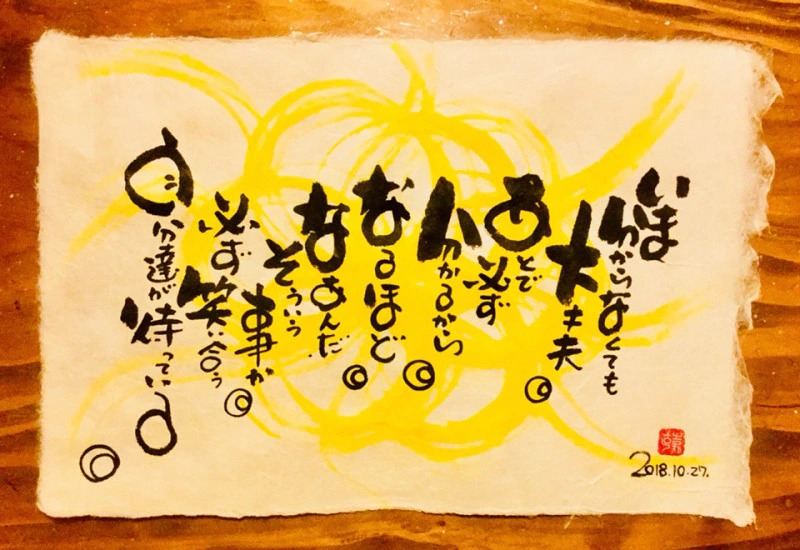 いま
分からなくても
大丈夫。
あとで
必ず
分かるから。
なるほど。
なあんだ
そういう
事か。
必ず
笑い合う
自分達が
待っている。
2018.10.27.